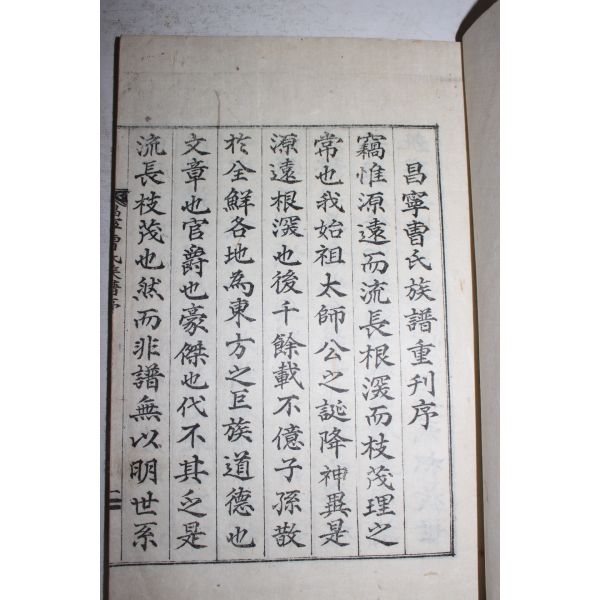 昌寧曺氏族譜重刊序
竊惟源遠而流長根深而枝茂理之
常也我始祖太師公之誕降神異是
源遠根深也後千餘載不億子孫散
於全鮮各地為東方之巨族道德也
文章也官爵也豪傑也代不其乏是
流長枝茂也然而非譜無以明世系
昌寧曺氏族譜序
一